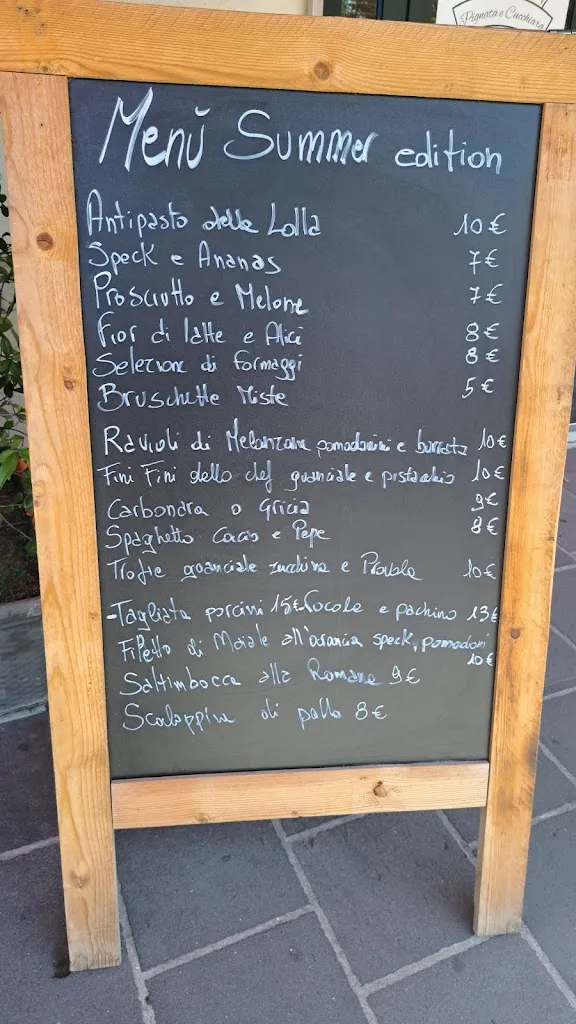 Pignata e Cucchiara
Menŭ Summer edition
Antipasto della Lolla 10€
Speck e Ananas 7€
Prosciutto e Melone 7€
Fior di latte e Alici 8€
Selezione di formaggi 8€
Bruschette Miste 5€
Ravioli di Melanzana pomodorini e burrata 10€
Fini Fini dello chef guanciale e pistacchio 10€
Carbonara o Gricia 9€
Spaghetto Cacio e Pepe 8€
Trofie guanciale zucchine e Provola 10€
-Tagliata porcini 15€ rocole e pachino 13€
Filetto di Maiale all'arancia speck, pomodori
10€
Saltimbocca alla Romana 9€
Scaloppine di pollo 8€